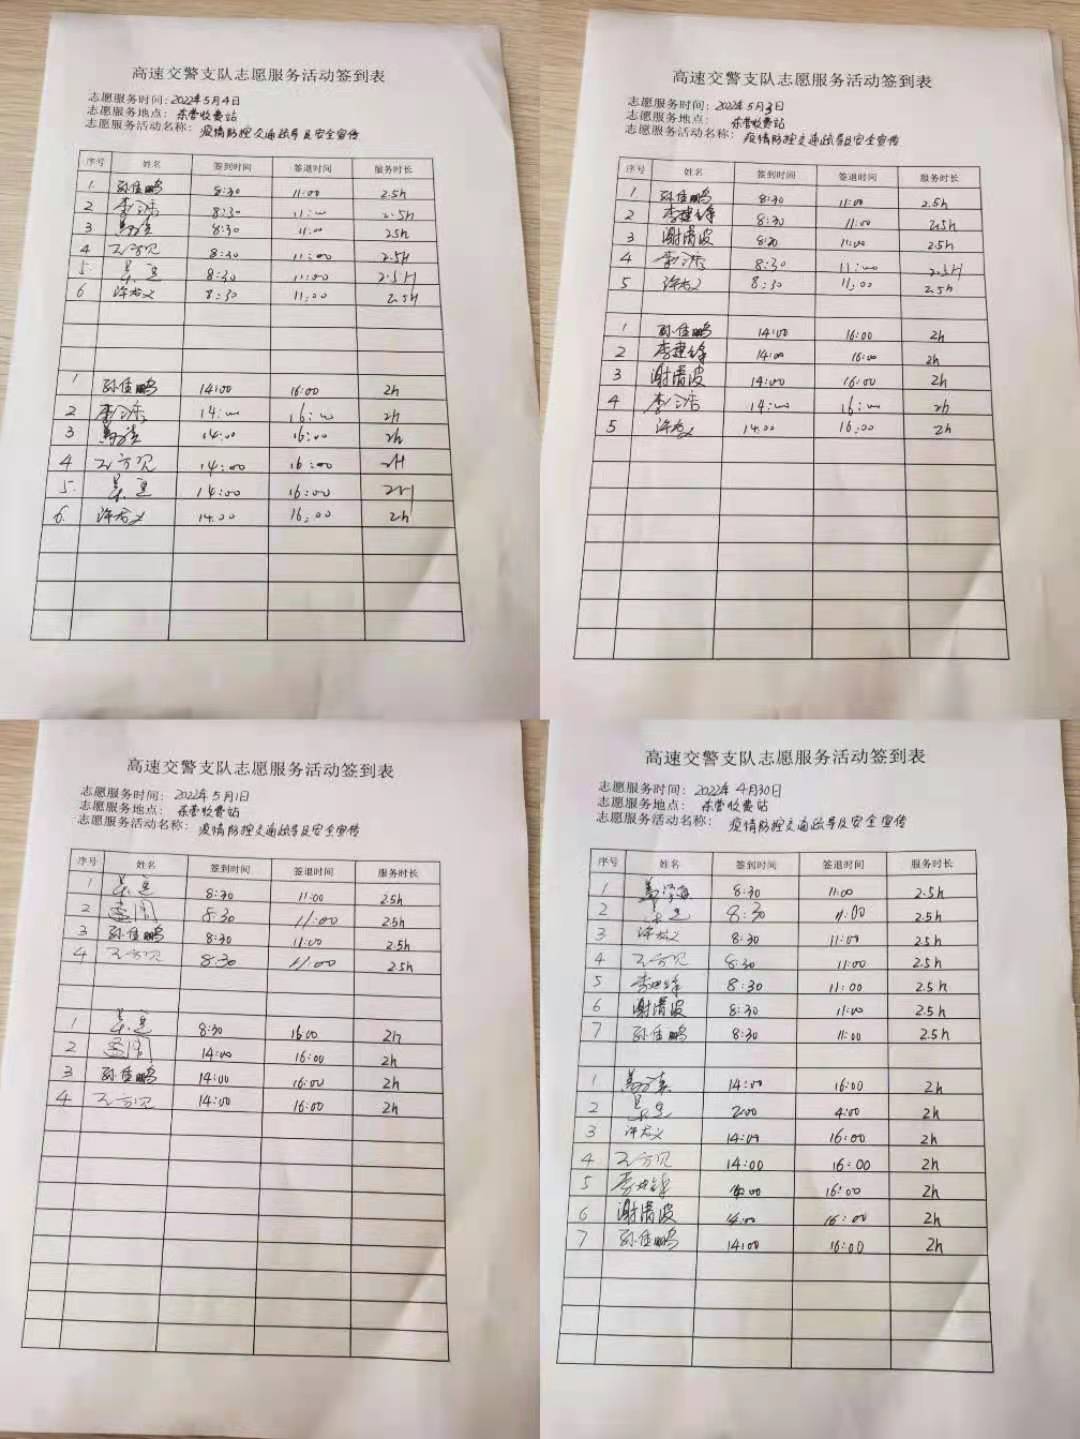 高速交警支队志愿服务活动签到表
志愿服务时间：2022年5月4日
志愿服务地点：东营收费站
志愿服务活动名称：疫情防控交通疏导及安全宣传
序号 姓名 签到时间 签退时间 服务时长
1 孙佳鹏 8:30 11:00 2.5h
2 8:30 11:00 2.5h
3 8:30 11:00 2.5h
4 8:30 11:00 2.5H
5. 8:30 11:00 2.5H
6 许友义 8:30 11:00 2.5H
1 孙佳鹏 14:00 16:00 2h
2 14:00 16:00 2h
3 14:00 16:00 2h
4 14:00 16:00 2H
5. 14:00 16:00 2H
6. 许友义 14:00 16:00 2h
高速交警支队志愿服务活动签到表
志愿服务时间：2022年5月3日
志愿服务地点：东营收费站
志愿服务活动名称：疫情防控交通疏导及安全宣传
序号 姓名 签到时间 签退时间 服务时长
1 孙佳鹏 8:30 11:00 2.5h
2 李建锋 8:30 11:00 2.5h
3 谢清波 8:30 11:00 2.5h
4 8:30 11:00 2.5H
5 许友义 8:30 11:00 2.5h
1 孙佳鹏 14:00 16:00 2h
2 李建锋 14:00 16:00 2h
3 谢清波 14:00 16:00 2h
4 14:00 16:00 2h
5 许友义 14:00 16:00 2h
高速交警支队志愿服务活动签到表
志愿服务时间：2022年5月1日
志愿服务地点：东营收费站
志愿服务活动名称：疫情防控交通疏导及安全宣传
序号 姓名 签到时间 签退时间 服务时长
1 8:30 11:00 2.5h
2 8:30 11:00 2.5h
3 孙佳鹏 8:30 11:00 2.5h
4 8:30 11:00 2.5h
1 8:30 16:00 2h
2 14:00 16:00 2h
3 孙佳鹏 14:00 16:00 2h
4 14:00 16:00 2h
高速交警支队志愿服务活动签到表
志愿服务时间：2022年4月30日
志愿服务地点：东营收费站
志愿服务活动名称：疫情防控交通疏导及安全宣传
序号 姓名 签到时间 签退时间 服务时长
1 8:30 11:00 2.5h
2 8:30 11:00 2.5h
3 许友义 8:30 11:00 2.5h
4 8:30 11:00 2.5h
5 8:30 11:00 2.5h
6 谢清波 8:30 11:00 2.5h
7 孙佳鹏 8:30 11:00 2.5h
1 14:00 16:00 2h
2 2:00 4:00 2h
3 许友义 14:00 16:00 2h
4 14:00 16:00 2h
5 14:00 16:00 2h
6 谢清波 14:00 16:00 2h
7 孙佳鹏 14:00 16:00 2h